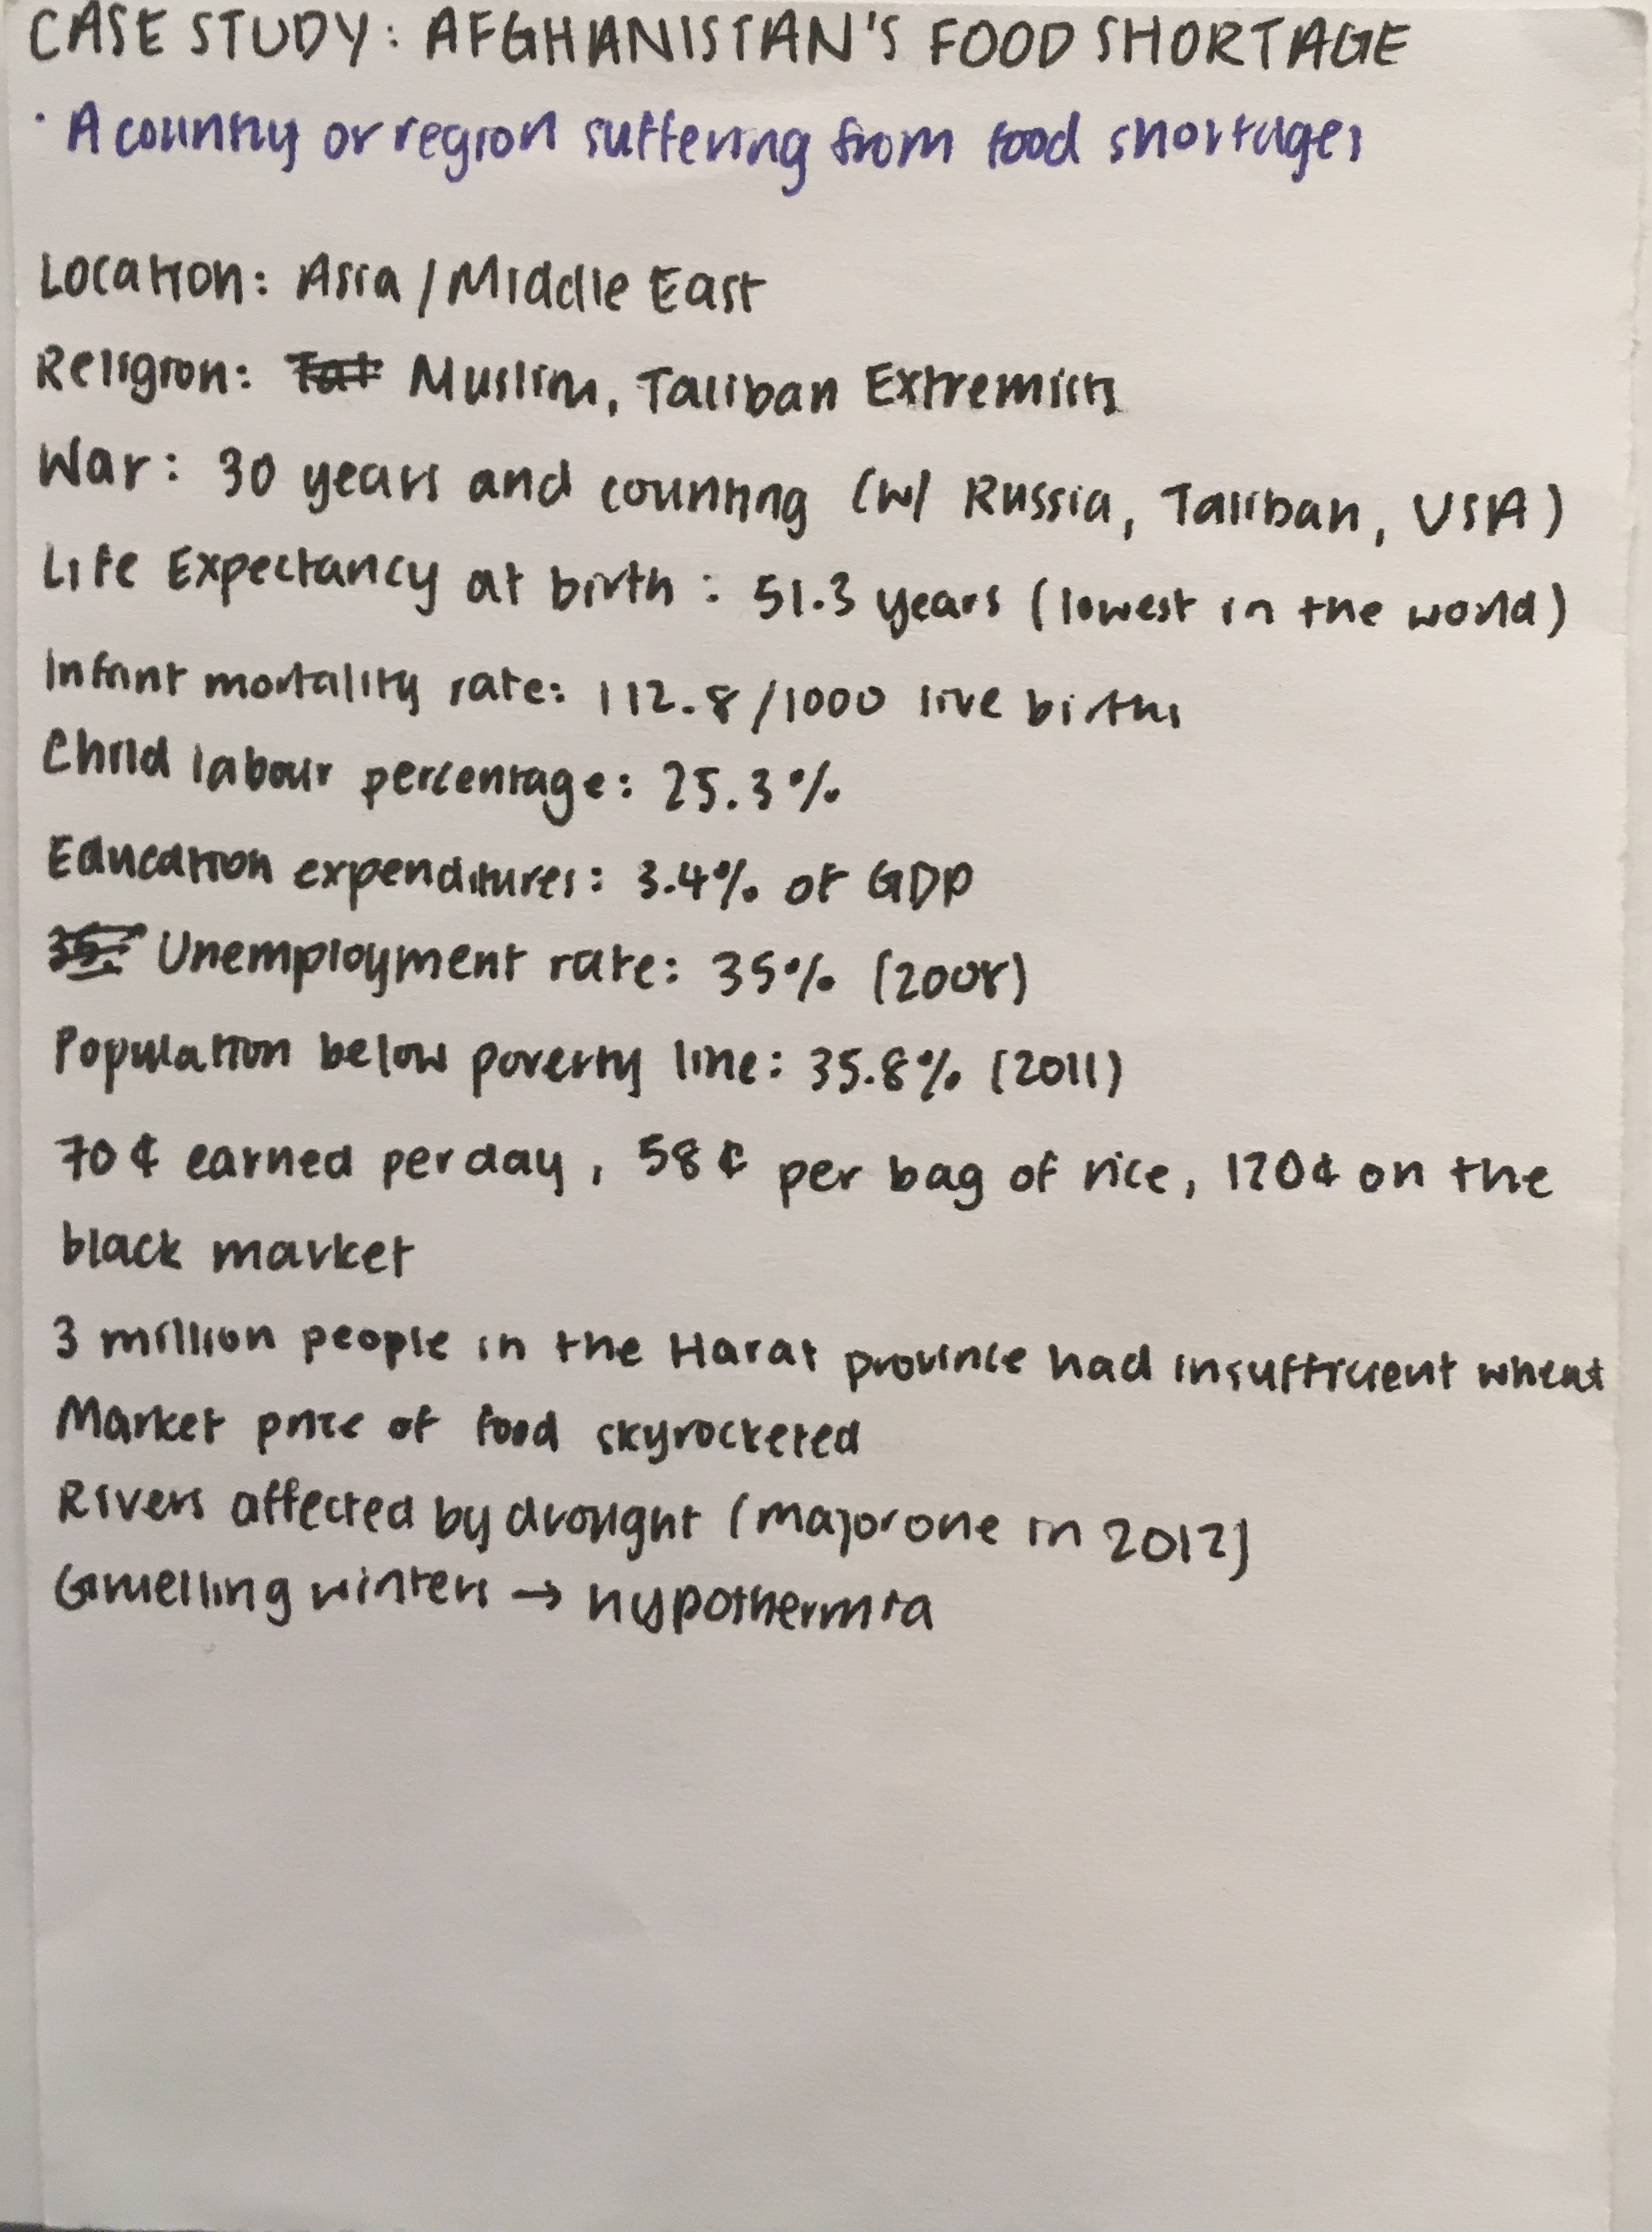 CASE STUDY: AFGHANISTAN'S FOOD SHORTAGE
· A country or region suffering from food shortages
Location: Asia / Middle East
Religion: Muslim, Taliban Extremists
War: 30 years and counting (w/ Russia, Taliban, USA)
Life Expectancy at birth: 51.3 years (lowest in the world)
Infant mortality rate: 112.8/1000 live births
Child labour percentage: 25.3%
Education expenditures: 3.4% of GDP
Unemployment rate: 35% (2008)
Population below poverty line: 35.8% (2011)
70¢ earned per day, 58¢ per bag of rice, 120¢ on the
black market
3 million people in the Harat province had insufficient wheat
Market price of food skyrocketed
Rivers affected by drought (major one in 2012)
Gruelling winters → hypothermia